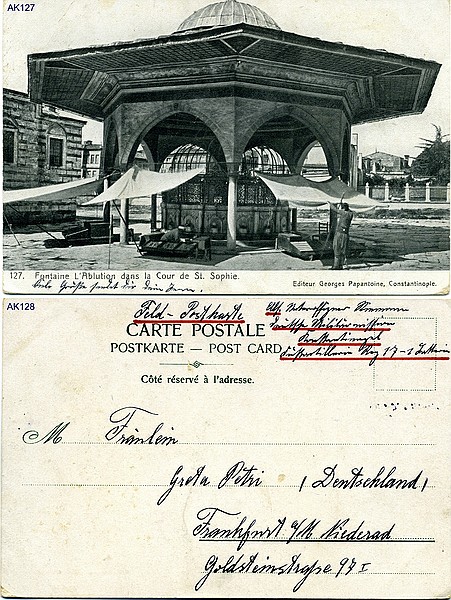 AK127
127. Fontaine L'Ablution dans la Cour de St. Sophie.
Editeur Georges Papantoine, Constantinople.
Viele Grüße sendet dir Dein
AK128
Feld-Postkarte
CARTE POSTALE
POSTKARTE — POST CARD
Deutsche Militärmission
Konstantinopel
Côté réservé à l'adresse.
M Fräulein
Greta Petri (Deutschland)
Frankfurt a/M Niederad
Goldsteinstraße 97 I